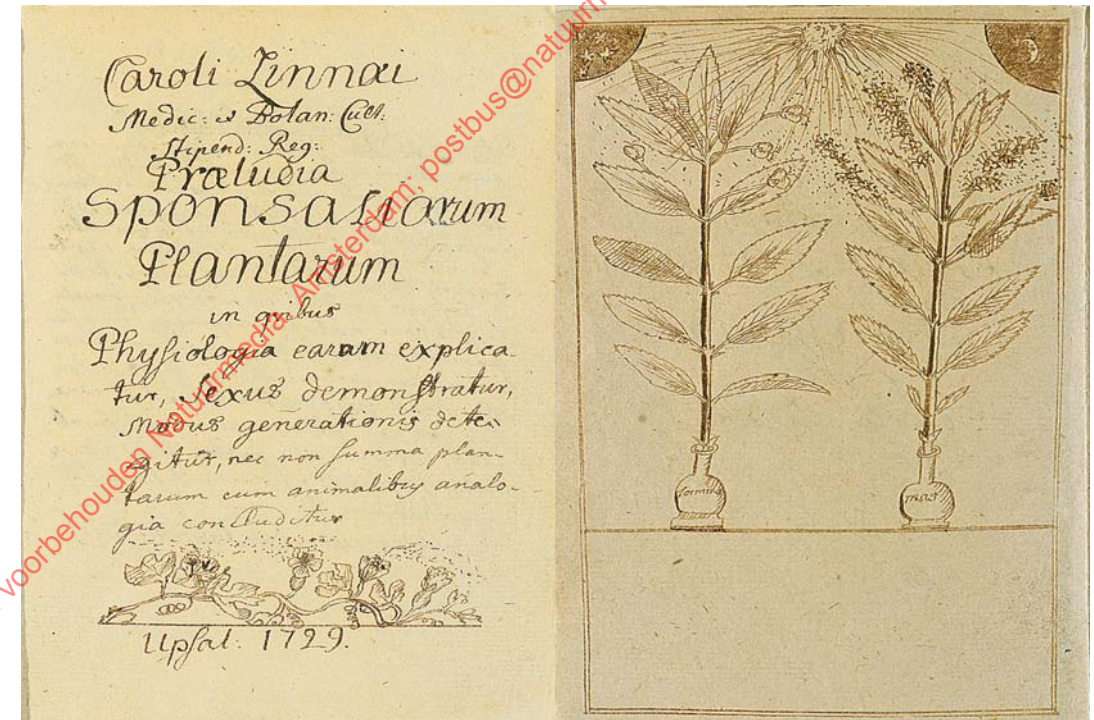 Caroli Linnæi
Medic: & Botan: Cult:
Stipend: Reg:
Præludia
Sponsaliarum
Plantarum
in quibus
Physiologia earum explica-
tur, Sexus demonstratur,
Modus generationis dete-
gitur, nec non summa plan-
tarum cum animalibus analo-
gia concluditur
Upsal: 1729.
femina
mas
voorbehouden Natuurmedia, Amsterdam; postbus@natuurm